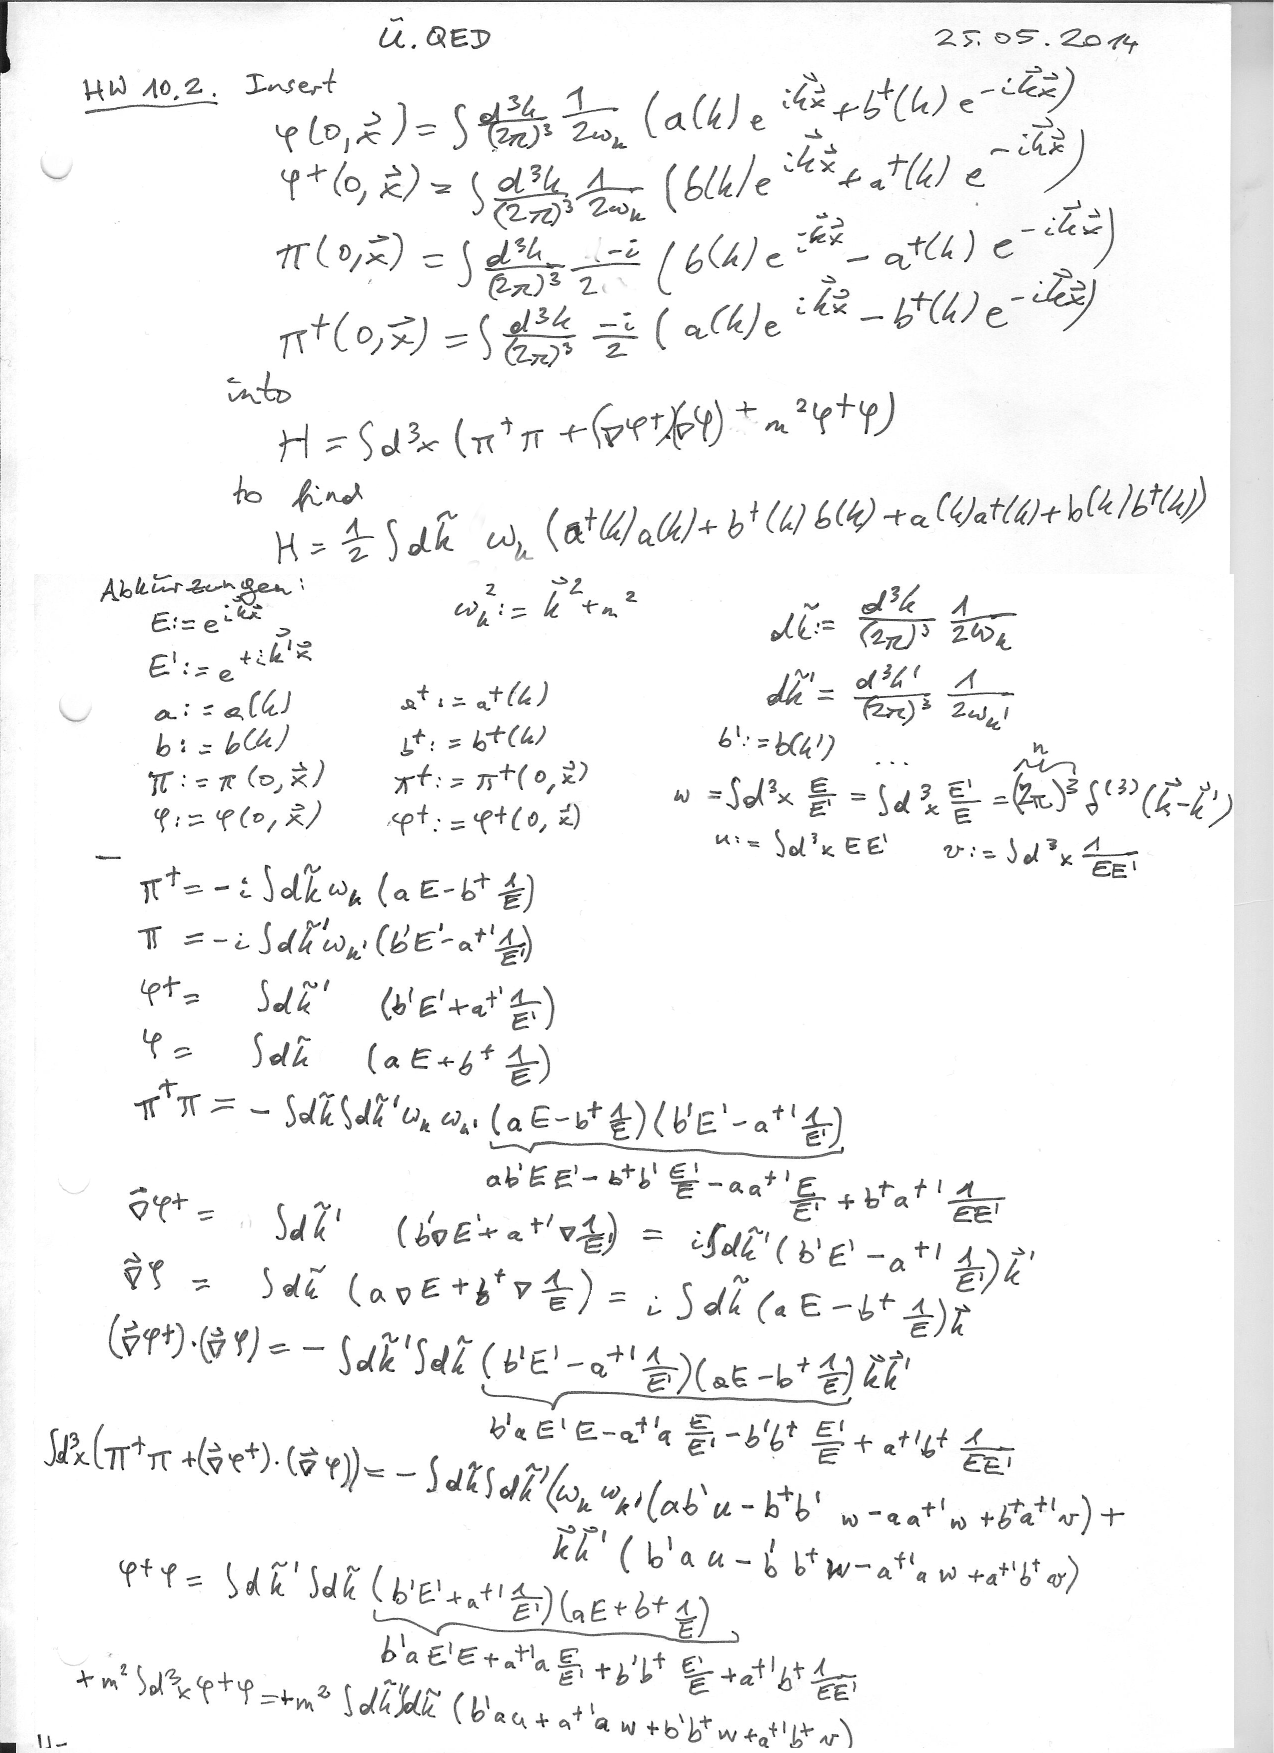 Ü. QED 25.05.2014
HW 10.2. Insert
φ(0,x⃗) = ∫ d³k/(2π)³ 1/2ω_k (a(k) e^{ik⃗x⃗} + b†(k) e^{-ik⃗x⃗})
φ†(0,x⃗) = ∫ d³k/(2π)³ 1/2ω_k (b(k) e^{ik⃗x⃗} + a†(k) e^{-ik⃗x⃗})
π(0,x⃗) = ∫ d³k/(2π)³ -i/2 (b(k) e^{ik⃗x⃗} - a†(k) e^{-ik⃗x⃗})
π†(0,x⃗) = ∫ d³k/(2π)³ -i/2 (a(k) e^{ik⃗x⃗} - b†(k) e^{-ik⃗x⃗})
into
H = ∫d³x (π†π + (∇φ†)(∇φ) + m²φ†φ)
to find
H = 1/2 ∫dk̃ ω_k (a†(k)a(k) + b†(k)b(k) + a(k)a†(k) + b(k)b†(k))
Abkürzungen:
E := e^{ik⃗x⃗} ω_k² := k⃗² + m² dk̃ := d³k/(2π)³ 1/2ω_k
E' := e^{+ik⃗'x⃗} dk̃' = d³k'/(2π)³ 1/2ω_k'
a := a(k) a† := a†(k)
b := b(k) b† := b†(k) b' := b(k') ...
π := π(0,x⃗) π† := π†(0,x⃗) w = ∫d³x E/E' = ∫d³x E'/E = (2π)³ δ^{(3)}(k⃗-k⃗')
n
φ := φ(0,x⃗) φ† := φ†(0,x⃗) u := ∫d³x EE' v := ∫d³x 1/EE'
π† = -i ∫dk̃ ω_k (aE - b† 1/E)
π = -i ∫dk̃' ω_k' (b'E' - a†' 1/E')
φ† = ∫dk̃' (b'E' + a†' 1/E')
φ = ∫dk̃ (aE + b† 1/E)
π†π = -∫dk̃∫dk̃' ω_k ω_k' (aE - b† 1/E)(b'E' - a†' 1/E')
ab'EE' - b†b' E'/E - aa†' E/E' + b†a†' 1/EE'
∇⃗φ† = ∫dk̃' (b'∇E' + a†'∇ 1/E') = i∫dk̃' (b'E' - a†' 1/E')k⃗'
∇⃗φ = ∫dk̃ (a∇E + b†∇ 1/E) = i∫dk̃ (aE - b† 1/E)k⃗
(∇⃗φ†)·(∇⃗φ) = -∫dk̃'∫dk̃ (b'E' - a†' 1/E')(aE - b† 1/E) k⃗k⃗'
b'aE'E - a†'a E/E' - b'b† E'/E + a†'b† 1/EE'
∫d³x(π†π + (∇⃗φ†)·(∇⃗φ)) = -∫dk̃∫dk̃' (ω_k ω_k' (ab'u - b†b'w - aa†'w + b†a†'v) +
k⃗k⃗' (b'au - b'b†w - a†'aw + a†'b†v)
φ†φ = ∫dk̃'∫dk̃ (b'E' + a†' 1/E')(aE + b† 1/E)
b'aE'E + a†'a E/E' + b'b† E'/E + a†'b† 1/EE'
+m²∫d³x φ†φ = +m²∫dk̃'∫dk̃ (b'au + a†'aw + b'b†w + a†'b†v)